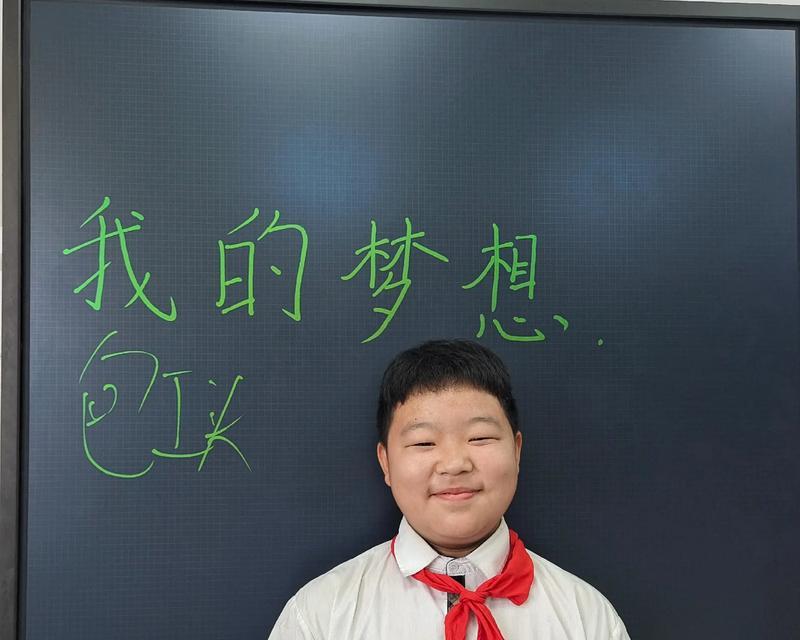 我的梦想.
包工头